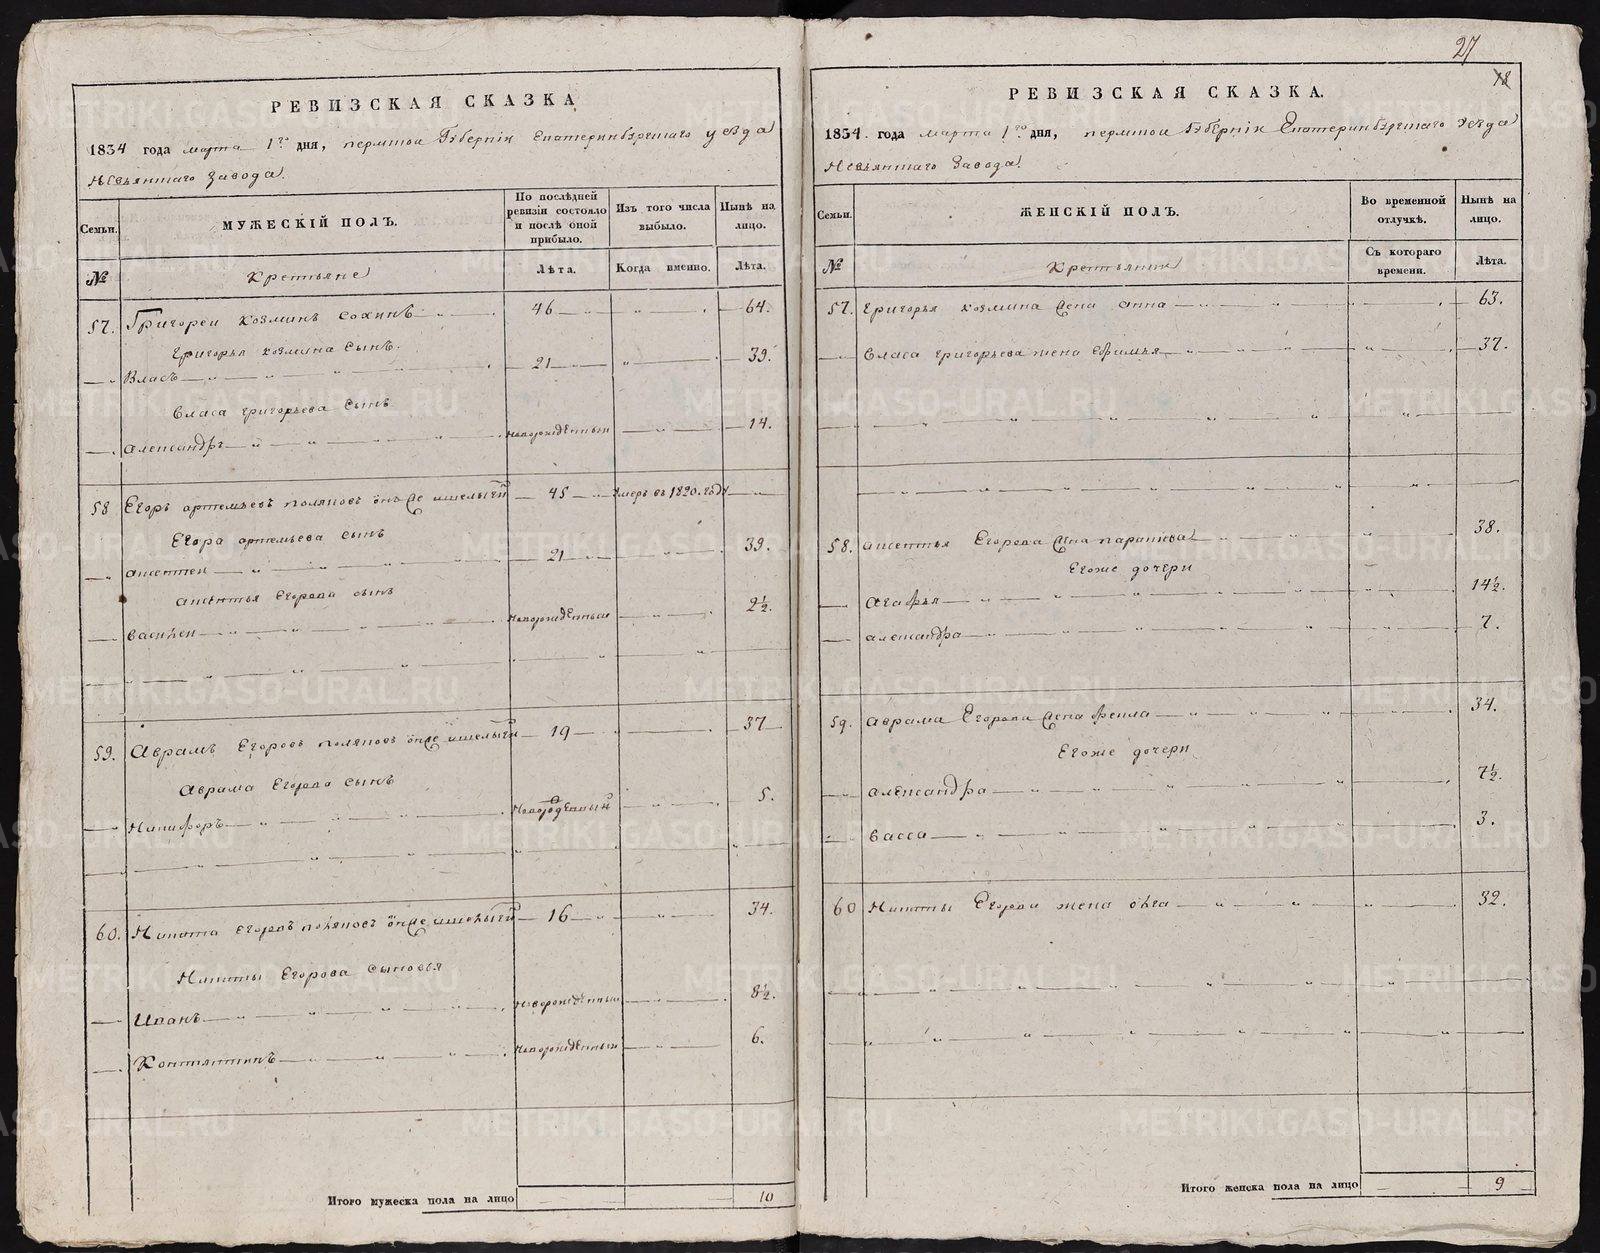 РЕВИЗСКАЯ СКАЗКА
1834 года марта 1го дня, пермской Губернiи Екатеринбургскаго уезда
Невьянскаго завода.
Семьи.
МУЖЕСКІЙ ПОЛЪ.
По послѣдней ревизіи состояло и послѣ оной прибыло.
Изъ того числа выбыло.
Нынѣ на лицо.
№
Крестьяне
Лѣта.
Когда именно.
Лѣта.
57. Григореи козминъ сохинъ 46 64.
Григорья козмина сынъ.
Власъ 21 39.
Власа григорьева сынъ
Александръ новорожденныи 14.
58 Егоръ артемьевъ поляковъ 45 Умеръ въ 1820. году
Егора артемьева сынъ
аксентеи 21 39.
аксентья Егорова сынъ
василеи новорожденныи 2½.
59. Аврамъ Егоровъ поляковъ 19 37
Аврама Егорова сынъ
Никифоръ Новорожденныи 5.
60. Никита Егоровъ поляковъ 16 34.
Никиты Егорова сыновья
Иванъ Новорожденныи 8½.
Констянтинъ Новорожденныи 6.
Итого мужеска пола на лицо 10
27
18
РЕВИЗСКАЯ СКАЗКА.
1834. года марта 1го дня, пермской Губернiи Екатеринбургскаго уезда
Невьянскаго Завода.
Семьи.
ЖЕНСКІЙ ПОЛЪ.
Во временной отлучкѣ.
Нынѣ на лицо.
№
Крестьянки
Съ котораго времени.
Лѣта.
57. Григорья козмина жена анна 63.
Власа григорьева жена Ефимья 37.
58. аксентья Егорова жена парасковья 38.
Егоже дочери
Агафья 14½.
александра 7.
59. Аврама Егорова жена фекла 34.
Егоже дочери
александра 7½.
васса 3.
60 Никиты Егорова жена olга 32.
Итого женска пола на лицо 9
METRIKI.GASO-URAL.RU